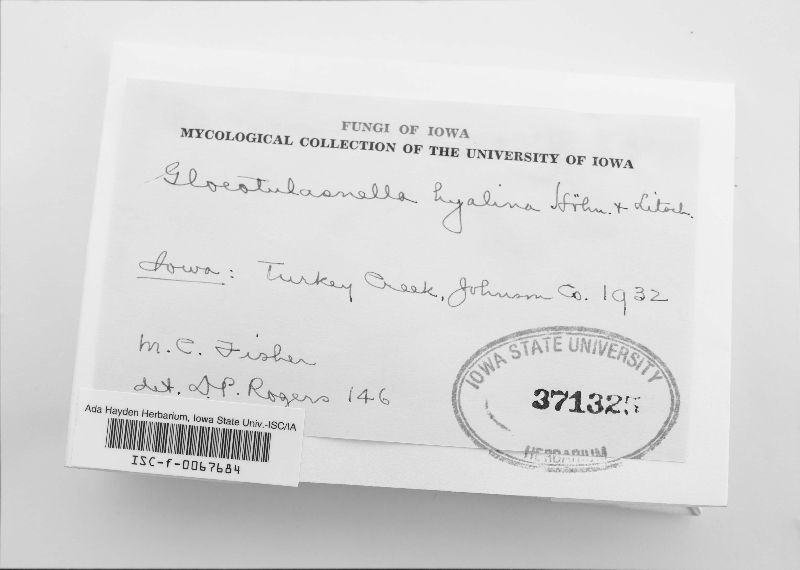 FUNGI OF IOWA
MYCOLOGICAL COLLECTION OF THE UNIVERSITY OF IOWA
Gloeotulasnella hyalina Höhn. & Litsch.
Iowa: Turkey Creek, Johnson Co. 1932
M. C. Fisher
det. D.P. Rogers 146
IOWA STATE UNIVERSITY
371325
HERBARIUM
Ada Hayden Herbarium, Iowa State Univ.-ISC/IA
ISC-f-0067684